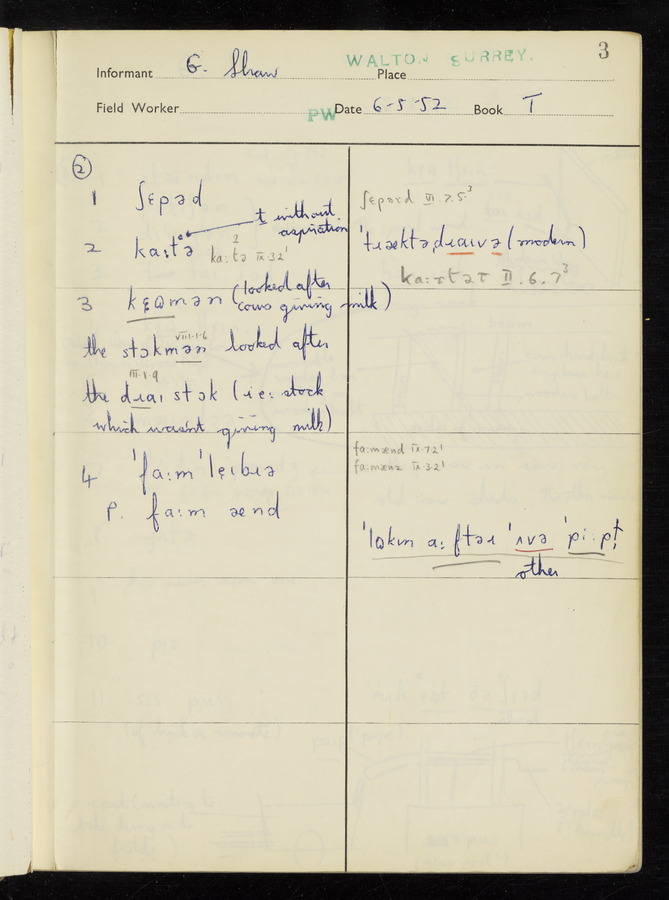 3
WALTON SURREY.
Informant G. Shaw Place
Field Worker PW Date 6-5-52 Book T
②
1 ʃɛpəd
ʃɛpəɹd VI.2.5.³
2 ka:tə
t without aspiration
ka:tə IX.3.2¹
'tɹæktəˌdɹaɪvə (modern)
ka:ɪtəɪ II.6.7³
3 kɛʊmən (looked after cows giving milk)
the stɔkmən looked after
VIII.1.6
the dɹaɪ stɔk (i.e: stock
III.1.9
which wasn't giving milk)
4 'fa:m'lɛɪbɹə
P. fa:m ænd
fa:mænd IX.7.2¹
fa:mænz IX.3.2¹
'lʊkɪn a:ftəɹ 'ʌvə 'pi:pɫ
other